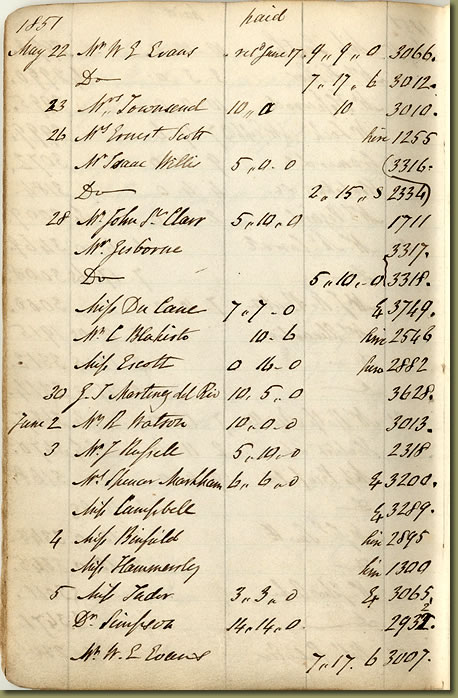 1851 paid
May 22 Mr W E Evans recd June 17. 9,,9,,0 3066.
Do 7,,17,,6 3012.
23 Mrs Townsend 10,,0 10 3010.
26 Mrs Ernest Scott hire 1255
Mr Isaac Willis 5,,0-0 3316.
Do 2,,15,,8 2334
28 Mr John St Clair 5,,10,,0 1711
Mr Gisborne 3317.
Do 5,,10,,0 3318.
Miss Du Cane 7,,7-0 & 3749.
Mr C Blakisto 10-6 hire 2546
Miss Escott 0 16-0 hire 2882
30 J. T Martinez del Rio 10,,5,,0 3628.
June 2 Mrs R Watson 10,,0-0 3013.
3 Mr J Russell 5,,10-0 2318
Mrs Spencer Markham 6,,6,,0 & 3200.
Miss Campbell & 3289.
4 Miss Binfield hire 2895
Miss Hammersley hire 1300
5 Miss Tudor 3,,3,,0 & 3065.
Dr Simpson 14,,14,,0 2932.
Mr W. E Evans 7,,17. 6 3007.